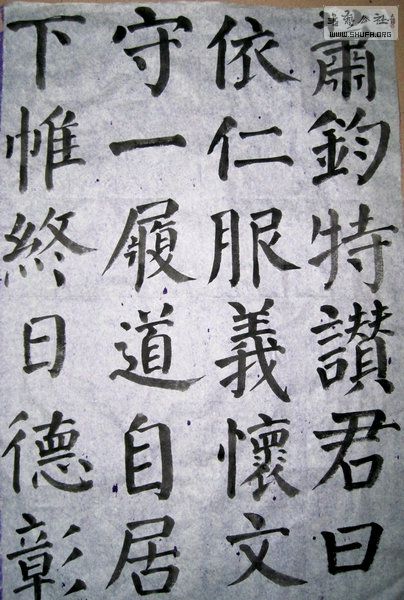 蕭鈞特讚君曰
依仁服義懷文
守一履道自居
下帷終日德彰
WWW.SHUFA.ORG